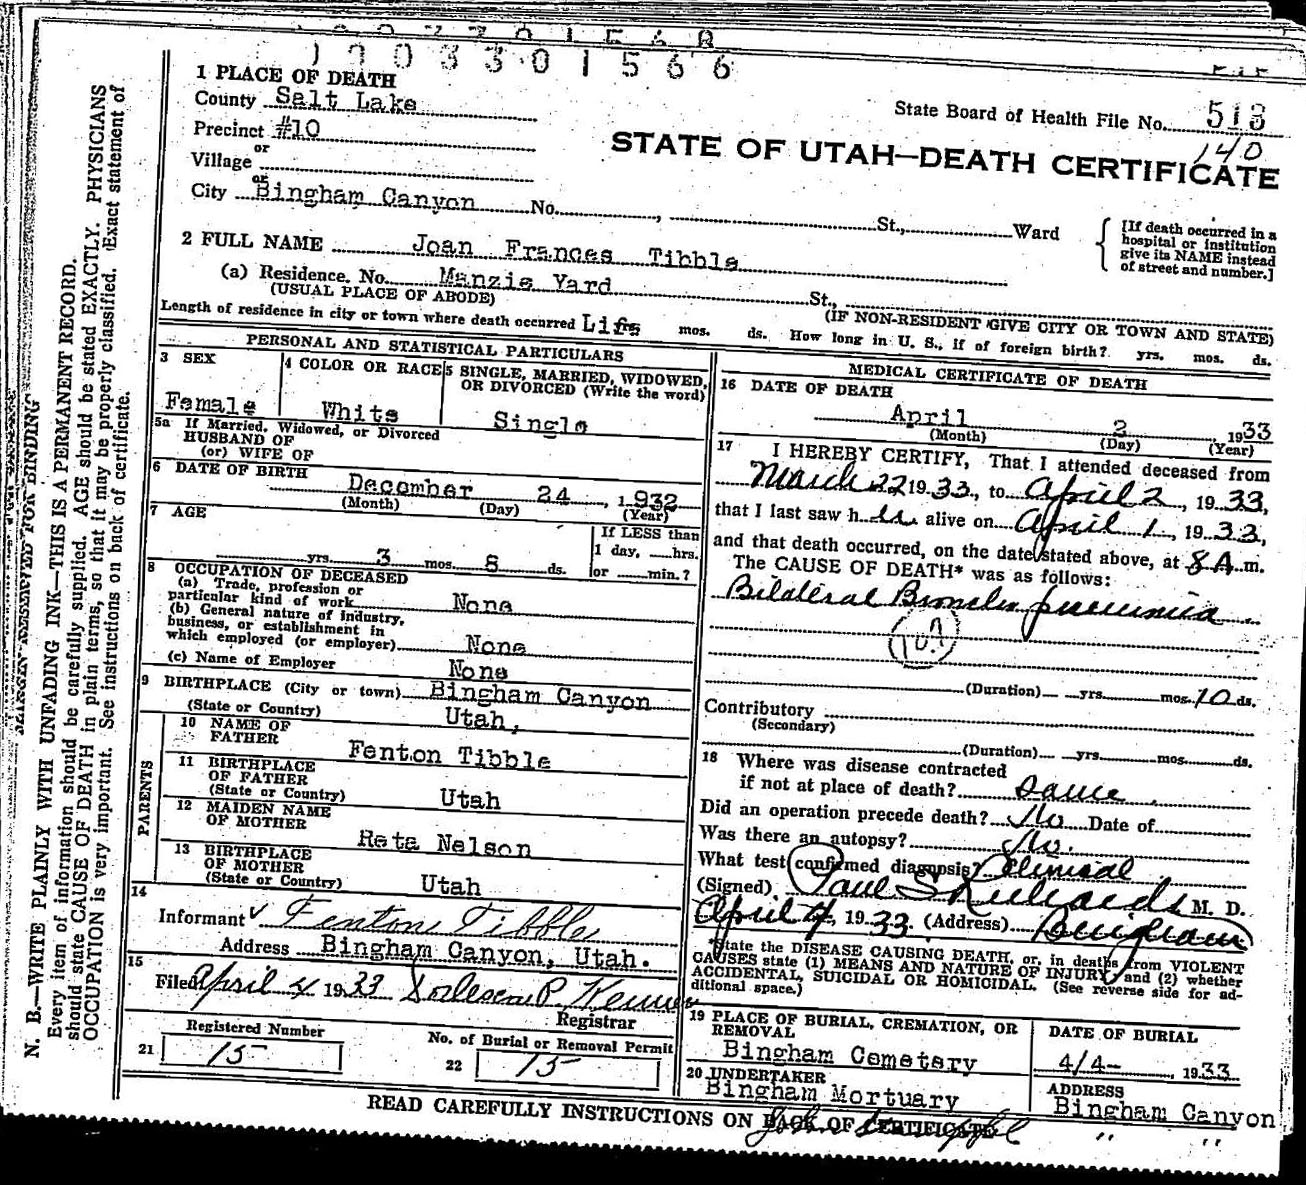 1703301566
1 PLACE OF DEATH
County Salt Lake
State Board of Health File No. 513
140
Precinct #10
or
Village
or
STATE OF UTAH—DEATH CERTIFICATE
City Bingham Canyon No. , St., Ward
[If death occurred in a hospital or institution give its NAME instead of street and number.]
2 FULL NAME Joan Frances Tibble
(a) Residence. No. Manzie Yard St.,
(USUAL PLACE OF ABODE) (IF NON-RESIDENT GIVE CITY OR TOWN AND STATE)
Length of residence in city or town where death occurred Life mos. ds. How long in U. S., if of foreign birth? yrs. mos. ds.
PERSONAL AND STATISTICAL PARTICULARS
3 SEX
Female
4 COLOR OR RACE
White
5 SINGLE, MARRIED, WIDOWED, OR DIVORCED (Write the word)
Single
5a If Married, Widowed, or Divorced
HUSBAND OF
(or) WIFE OF
6 DATE OF BIRTH
December 24 , 1932
(Month) (Day) (Year)
7 AGE
yrs. 3 mos. 8 ds.
If LESS than
1 day, hrs.
or min.?
8 OCCUPATION OF DECEASED
(a) Trade, profession or
particular kind of work None
(b) General nature of industry,
business, or establishment in
which employed (or employer) None
(c) Name of Employer None
9 BIRTHPLACE (City or town) Bingham Canyon
(State or Country) Utah,
PARENTS
10 NAME OF
FATHER Fenton Tibble
11 BIRTHPLACE
OF FATHER
(State or Country) Utah
12 MAIDEN NAME
OF MOTHER Reta Nelson
13 BIRTHPLACE
OF MOTHER
(State or Country) Utah
14
Informant Fenton Tibble
Address Bingham Canyon, Utah.
15
Filed April 4 1933
Registrar
Registered Number
21 15
No. of Burial or Removal Permit
22 15
MEDICAL CERTIFICATE OF DEATH
16 DATE OF DEATH
April 2 , 1933
(Month) (Day) (Year)
17 I HEREBY CERTIFY, That I attended deceased from
March 22 1933, to April 2, 1933,
that I last saw her alive on April 1, 1933,
and that death occurred, on the date stated above, at 8 A m.
The CAUSE OF DEATH* was as follows:
Bilateral Broncho pneumonia
107
(Duration) yrs. mos. 10 ds.
Contributory
(Secondary)
(Duration) yrs. mos. ds.
18 Where was disease contracted
if not at place of death? Same
Did an operation precede death? No Date of
Was there an autopsy? No.
What test confirmed diagnosis? Clinical
(Signed) Paul S Richards M. D.
April 4, 1933. (Address) Bingham
*State the DISEASE CAUSING DEATH, or, in deaths from VIOLENT
CAUSES state (1) MEANS AND NATURE OF INJURY, and (2) whether
ACCIDENTAL, SUICIDAL OR HOMICIDAL. (See reverse side for ad-
ditional space.)
19 PLACE OF BURIAL, CREMATION, OR
REMOVAL
Bingham Cemetery
DATE OF BURIAL
4/4- , 1933
20 UNDERTAKER
Bingham Mortuary
ADDRESS
Bingham Canyon
" "
READ CAREFULLY INSTRUCTIONS ON BACK OF CERTIFICATE
MARGIN RESERVED FOR BINDING
N. B.—WRITE PLAINLY WITH UNFADING INK—THIS IS A PERMANENT RECORD.
Every item of information should be carefully supplied. AGE should be stated EXACTLY. PHYSICIANS
should state CAUSE OF DEATH in plain terms, so that it may be properly classified. Exact statement of
OCCUPATION is very important. See instructions on back of certificate.